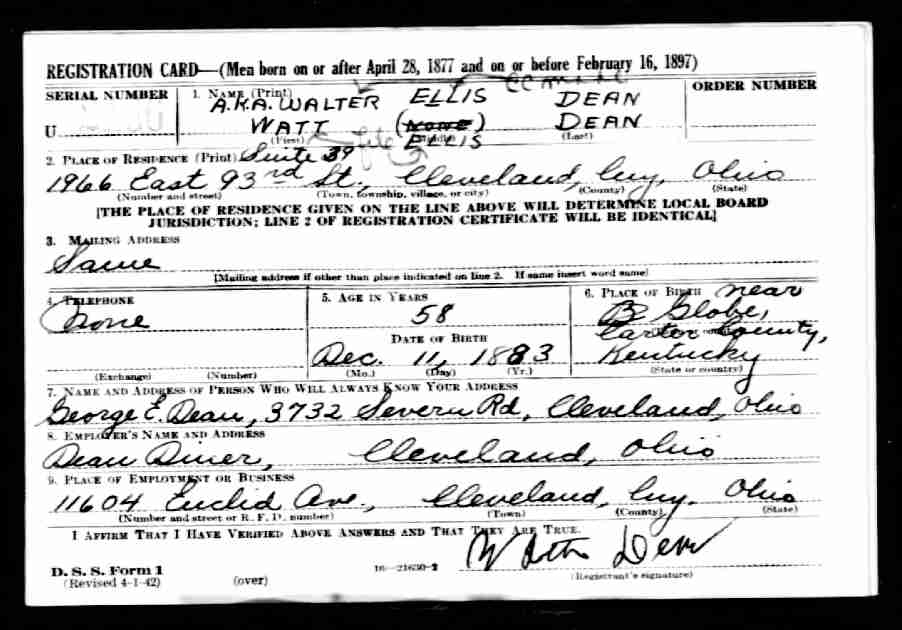 REGISTRATION CARD—(Men born on or after April 28, 1877 and on or before February 16, 1897)
SERIAL NUMBER 1. NAME (Print) ORDER NUMBER
A.K.A. WALTER ELLIS DEAN
U WATT (NONE) DEAN
(First) ELLIS (Last)
2. PLACE OF RESIDENCE (Print) Suite 39
1966 East 93rd St., Cleveland, Cuy, Ohio
(Number and street) (Town, township, village, or city) (County) (State)
[THE PLACE OF RESIDENCE GIVEN ON THE LINE ABOVE WILL DETERMINE LOCAL BOARD
JURISDICTION; LINE 2 OF REGISTRATION CERTIFICATE WILL BE IDENTICAL]
3. MAILING ADDRESS
Same
[Mailing address if other than place indicated on line 2. If same insert word same]
4. TELEPHONE 5. AGE IN YEARS 6. PLACE OF BIRTH near
None 58 Globe,
DATE OF BIRTH Carter County,
Dec. 11, 1883 Kentucky
(Exchange) (Number) (Mo.) (Day) (Yr.) (State or country)
7. NAME AND ADDRESS OF PERSON WHO WILL ALWAYS KNOW YOUR ADDRESS
George E. Dean, 3732 Severn Rd, Cleveland, Ohio
8. EMPLOYER'S NAME AND ADDRESS
Dean Diner, Cleveland, Ohio
9. PLACE OF EMPLOYMENT OR BUSINESS
11604 Euclid Ave., Cleveland, Cuy. Ohio
(Number and street or R. F. D. number) (Town) (County) (State)
I AFFIRM THAT I HAVE VERIFIED ABOVE ANSWERS AND THAT THEY ARE TRUE.
D. S. S. Form 1 Dean
(Revised 4-1-42) (over) 16—21630-2 (Registrant's signature)